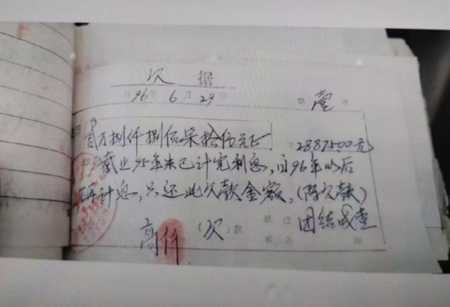 欠 据
96 6月29 壹
贰万捌仟捌佰柒拾伍元正 ¥28875.00元
截止95年末已计完利息,由96年以后
不再计息,只还此欠款金额。(陈欠款)
欠(款) 单位 团结